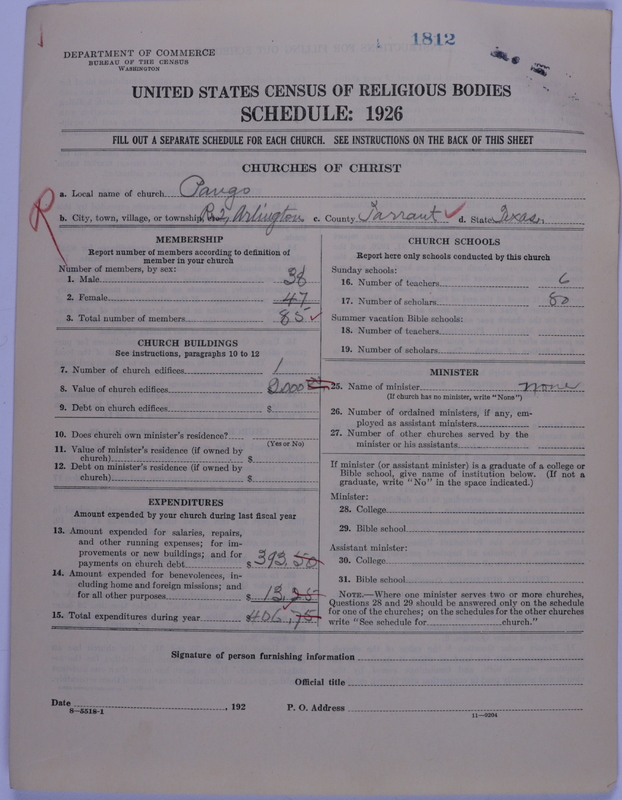 1812
DEPARTMENT OF COMMERCE
BUREAU OF THE CENSUS
WASHINGTON
UNITED STATES CENSUS OF RELIGIOUS BODIES
SCHEDULE: 1926
FILL OUT A SEPARATE SCHEDULE FOR EACH CHURCH. SEE INSTRUCTIONS ON THE BACK OF THIS SHEET
CHURCHES OF CHRIST
a. Local name of church
b. City, town, village, or township R 2, Arlington c. County Tarrant d. State Texas
R
MEMBERSHIP
Report number of members according to definition of
member in your church
Number of members, by sex:
1. Male 38
2. Female 47
3. Total number of members 85
CHURCH BUILDINGS
See instructions, paragraphs 10 to 12
7. Number of church edifices 1
8. Value of church edifices 2000
9. Debt on church edifices $
10. Does church own minister's residence?
(Yes or No)
11. Value of minister's residence (if owned by
church) $
12. Debt on minister's residence (if owned by
church) $
EXPENDITURES
Amount expended by your church during last fiscal year
13. Amount expended for salaries, repairs,
and other running expenses; for im-
provements or new buildings; and for
payments on church debt $ 393.50
14. Amount expended for benevolences, in-
cluding home and foreign missions; and
for all other purposes $ 13.25
15. Total expenditures during year $ 406.75
CHURCH SCHOOLS
Report here only schools conducted by this church
Sunday schools:
16. Number of teachers 6
17. Number of scholars 80
Summer vacation Bible schools:
18. Number of teachers
19. Number of scholars
MINISTER
25. Name of minister none
(If church has no minister, write "None")
26. Number of ordained ministers, if any, em-
ployed as assistant ministers
27. Number of other churches served by the
minister or his assistants
If minister (or assistant minister) is a graduate of a college or
Bible school, give name of institution below. (If not a
graduate, write "No" in the space indicated.)
Minister:
28. College
29. Bible school
Assistant minister:
30. College
31. Bible school
NOTE.—Where one minister serves two or more churches,
Questions 28 and 29 should be answered only on the schedule
for one of the churches; on the schedules for the other churches
write "See schedule for church."
Signature of person furnishing information
Official title
Date , 192 P. O. Address
8—5518-1
11—9204